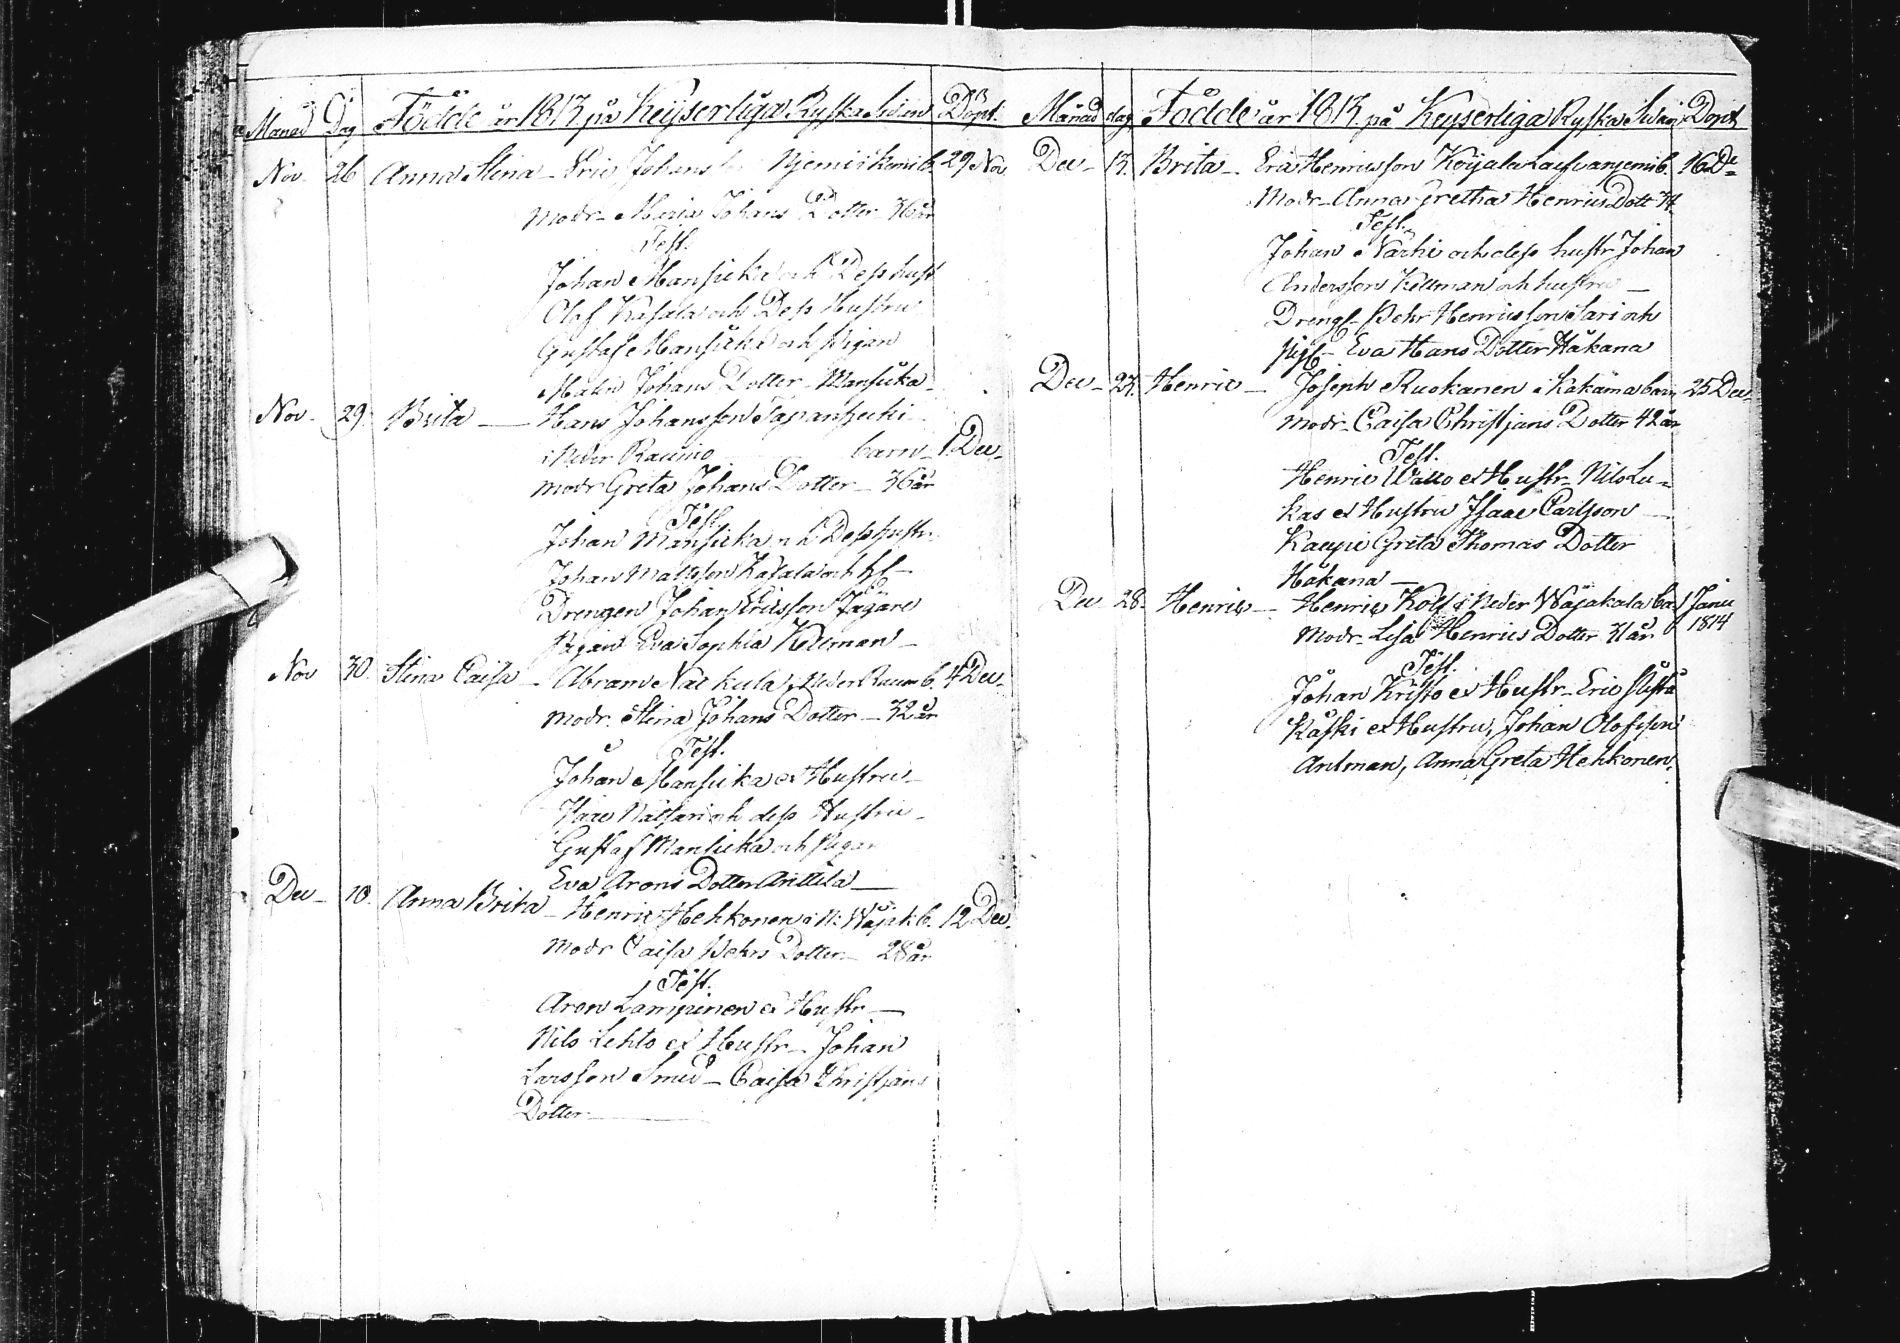 Månad Dag Födde år 1813 på Keyserliga Ryska Sidan Döpt.
Nov. 26 Anna Stina - Eric Johans Njemis 29 Nov
Modr - Maria Johans Dotter 36 år
Test.
Johan Mansicka och Dess hust
Olof Kasala och Dess Hustru
Gustaf Mansicka och Pigan
Malin Johans Dotter Mansicka -
Nov. 29. Brita - Hans Johansson Tapanjecki
i Neder Raumo barn - 1 Dec -
Modr Greta Johans Dotter - 36 år
Test.
Johan Mansicka och Dess hustr.
Johan Mattsson Kasala och
Drengen Johan Ericsson Jägare
Pigan Eva Sophia Kellman -
Nov 30. Stina Caisa - Abram Natkula Neder Raum b. 4 Dec -
Modr. Stina Johans Dotter - 32 år
Test.
Johan Mansicka et Hustru -
Isaac och dess Hustru -
Gustaf Mansicka och Pigan
Eva Arons Dotter Anttila -
Dec - 10. Anna Brita - Henric Hehkonen i N: Wojak b. 12 Dec.
Modr Caisa Pehrs Dotter - 28 år
Test.
Aron Lampinen et Hustr -
Nils Lehto et Hustr - Johan
Larsson Smed - Caisa Christjans
Dotter -
Månad dag Födde år 1813 på Keyserliga Ryska Sidan Döpt
Dec - 13. Brita - Eric Henricsson Koijala b. 16 De
Modr - Anna Gretha Henrics Dott 34
Test.
Johan Närhi och dess hustr Johan
Andersson Kellman och hustru -
Drengs - Pehr Henricsson Sari och
Eva Hans Dotter Håkana
Dec - 23. Henric - Joseph Ruokanen i Kakama barn 25 Dec -
Modr - Caisa Christjans Dotter 42 år
Test.
Henric Wallo et Hustr - Nils Lu=
kas et Hustru Isaac Carlsson -
Kauppi Greta Thomas Dotter
Håkana -
Dec 28. Henric - Henric Kolf i Neder Wåjakala ba 1 Janu
Modr - Lisa Henrics Dotter 31 år 1814
Test.
Johan Kristo et Hustr - Eric
Kaski et Hustru, Johan Olofsson
Antman, Anna Greta Hehkonen.